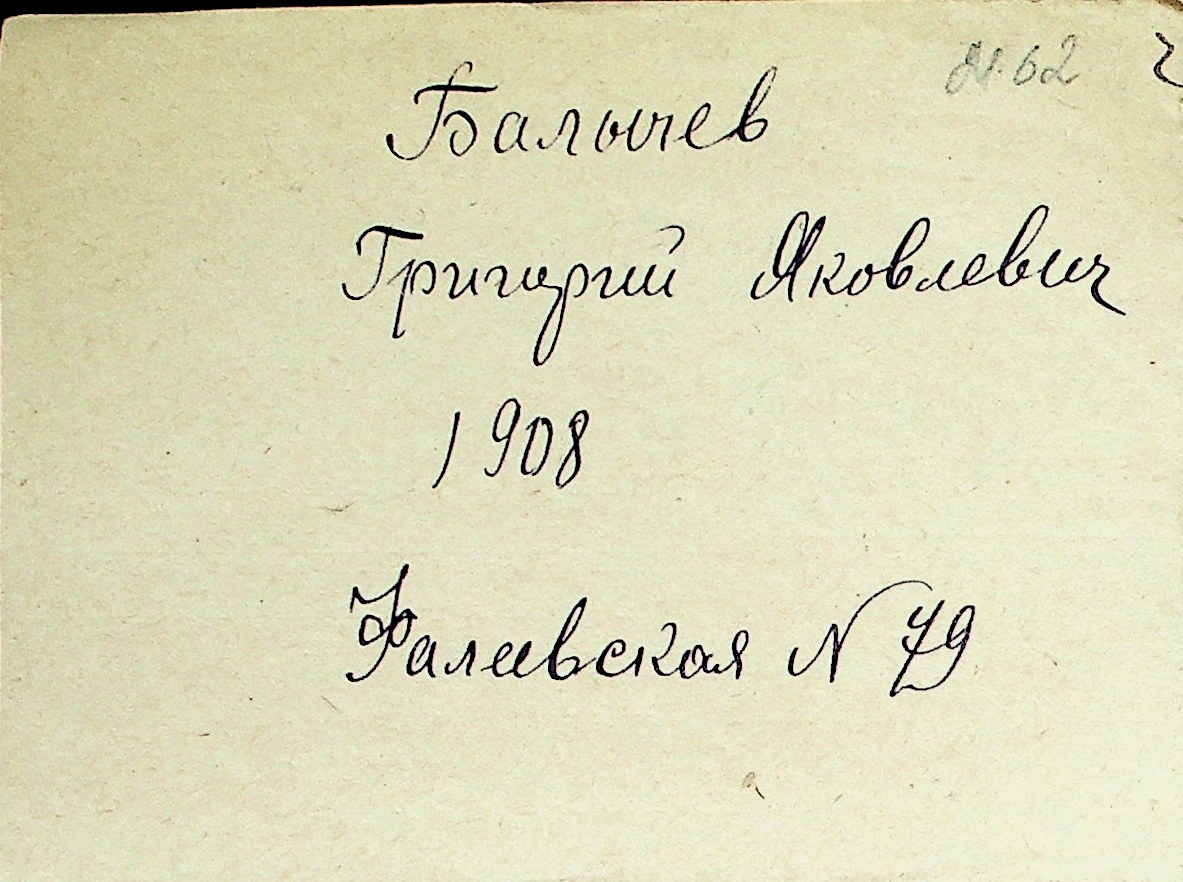 N. 62
Балычев
Григорий Яковлевич
1908
Фалеевская N 79